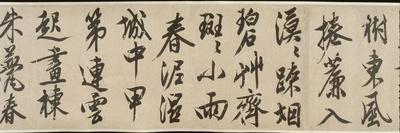 榭東風
捲簾入
漠〻踈烟
碧艸齊
斑〻小雨
春泥濕
城中甲
第連雲
起畫棟
朱甍春